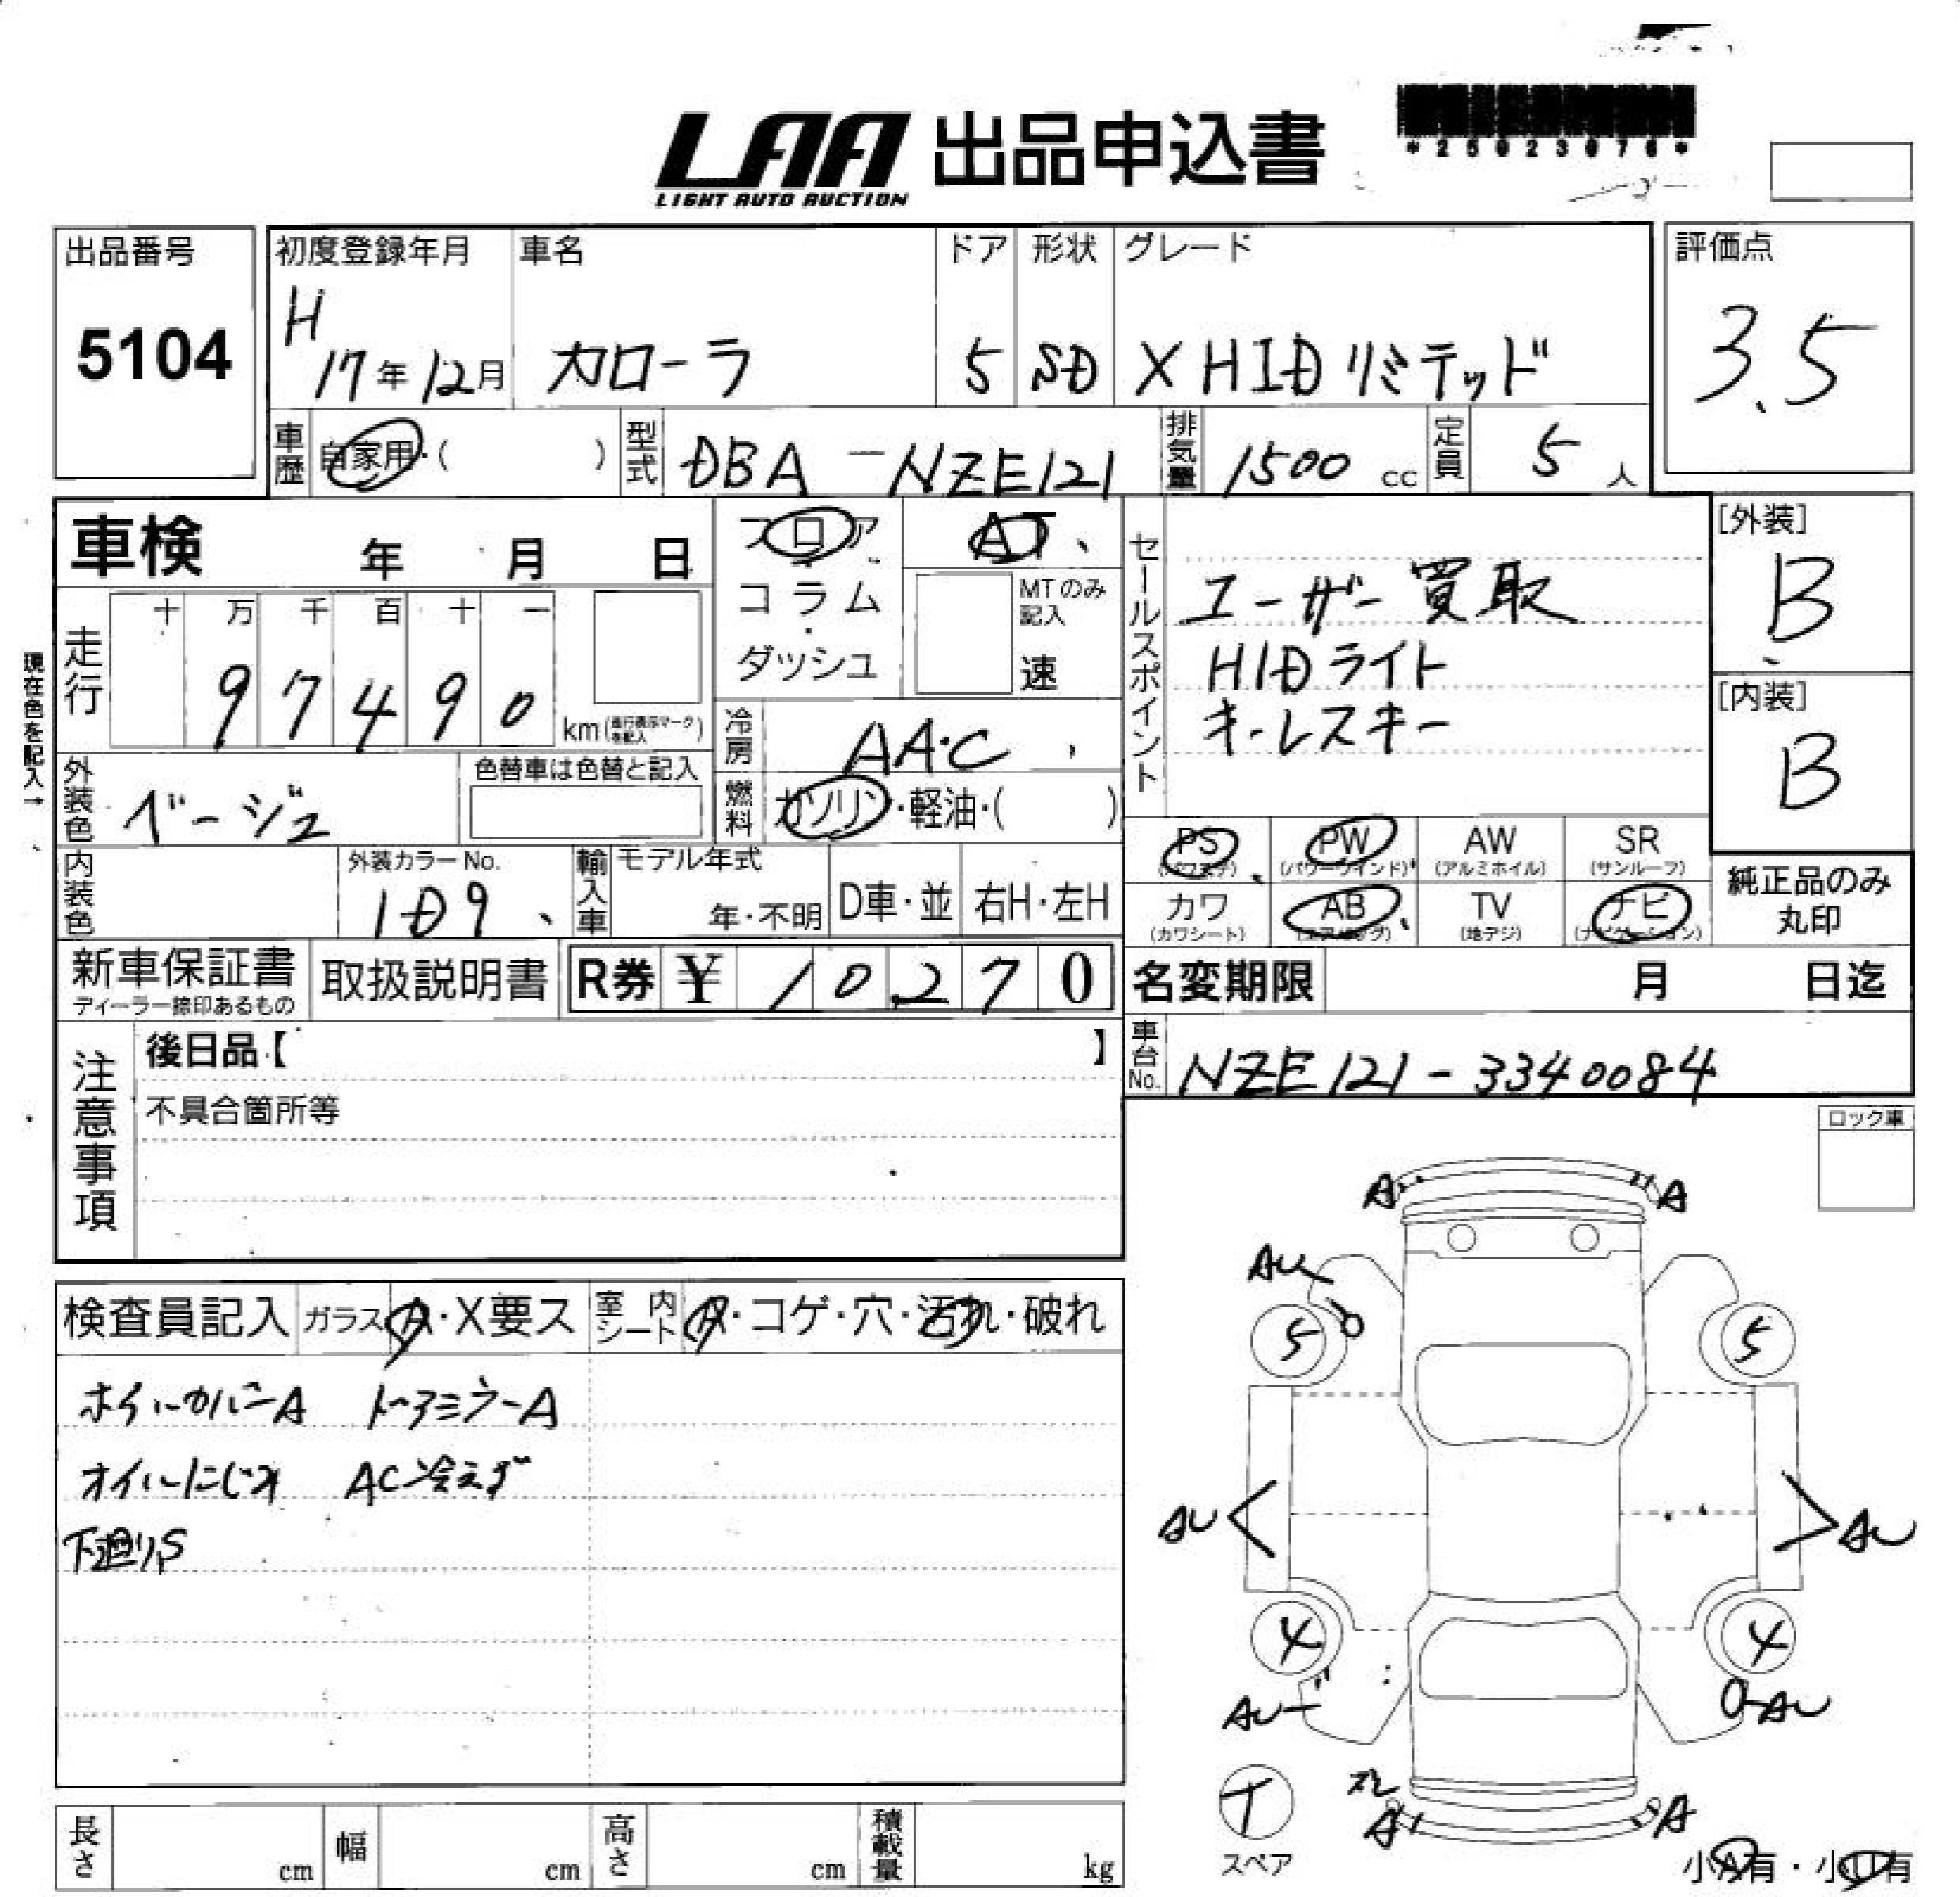 LAA 出品申込書
LIGHT AUTO AUCTION
*25023076*
出品番号 初度登録年月 車名 ドア 形状 グレード 評価点
5104 H 17年12月 カローラ 5 SD X HID リミテッド 3.5
車歴 自家用・( ) 型式 DBA-NZE121 排気量 1500 cc 定員 5 人
車検 年 月 日
フロア・コラム・ダッシュ
AT
MTのみ記入
速
セールスポイント
ユーザー買取
HIDライト
キーレスキー
[外装]
B
[内装]
B
現在色を記入→
走行 十 万 千 百 十 一
97490 km(走行表示マークを記入)
冷房 AAC
外装色 ベージュ 色替車は色替と記入
燃料 ガソリン・軽油・( )
PS PW AW SR
(パワステ) (パワーウインド) (アルミホイル) (サンルーフ)
カワ AB TV ナビ
(カワシート) (エアバッグ) (地デジ) (ナビゲーション)
純正品のみ
丸印
内装色 外装カラーNo. 1D9 輸入車 モデル年式 年・不明 D車・並 右H・左H
新車保証書 取扱説明書 R券 ¥ 10,270
ディーラー捺印あるもの
名変期限 月 日迄
車台No. NZE121-3340084
注意事項
後日品【 】
不具合箇所等
ロック車
検査員記入 ガラス A・X要ス 室内シート A・コゲ・穴・汚れ・破れ
ホイールカバーA ドアミラーA
オイルにじみ AC冷えず
下廻りS
A A
AU
5 5
AU AU
4 4
AU AU
ズレ
A A
T
スペア
小A有・小U有
長さ cm 幅 cm 高さ cm 積載量 kg